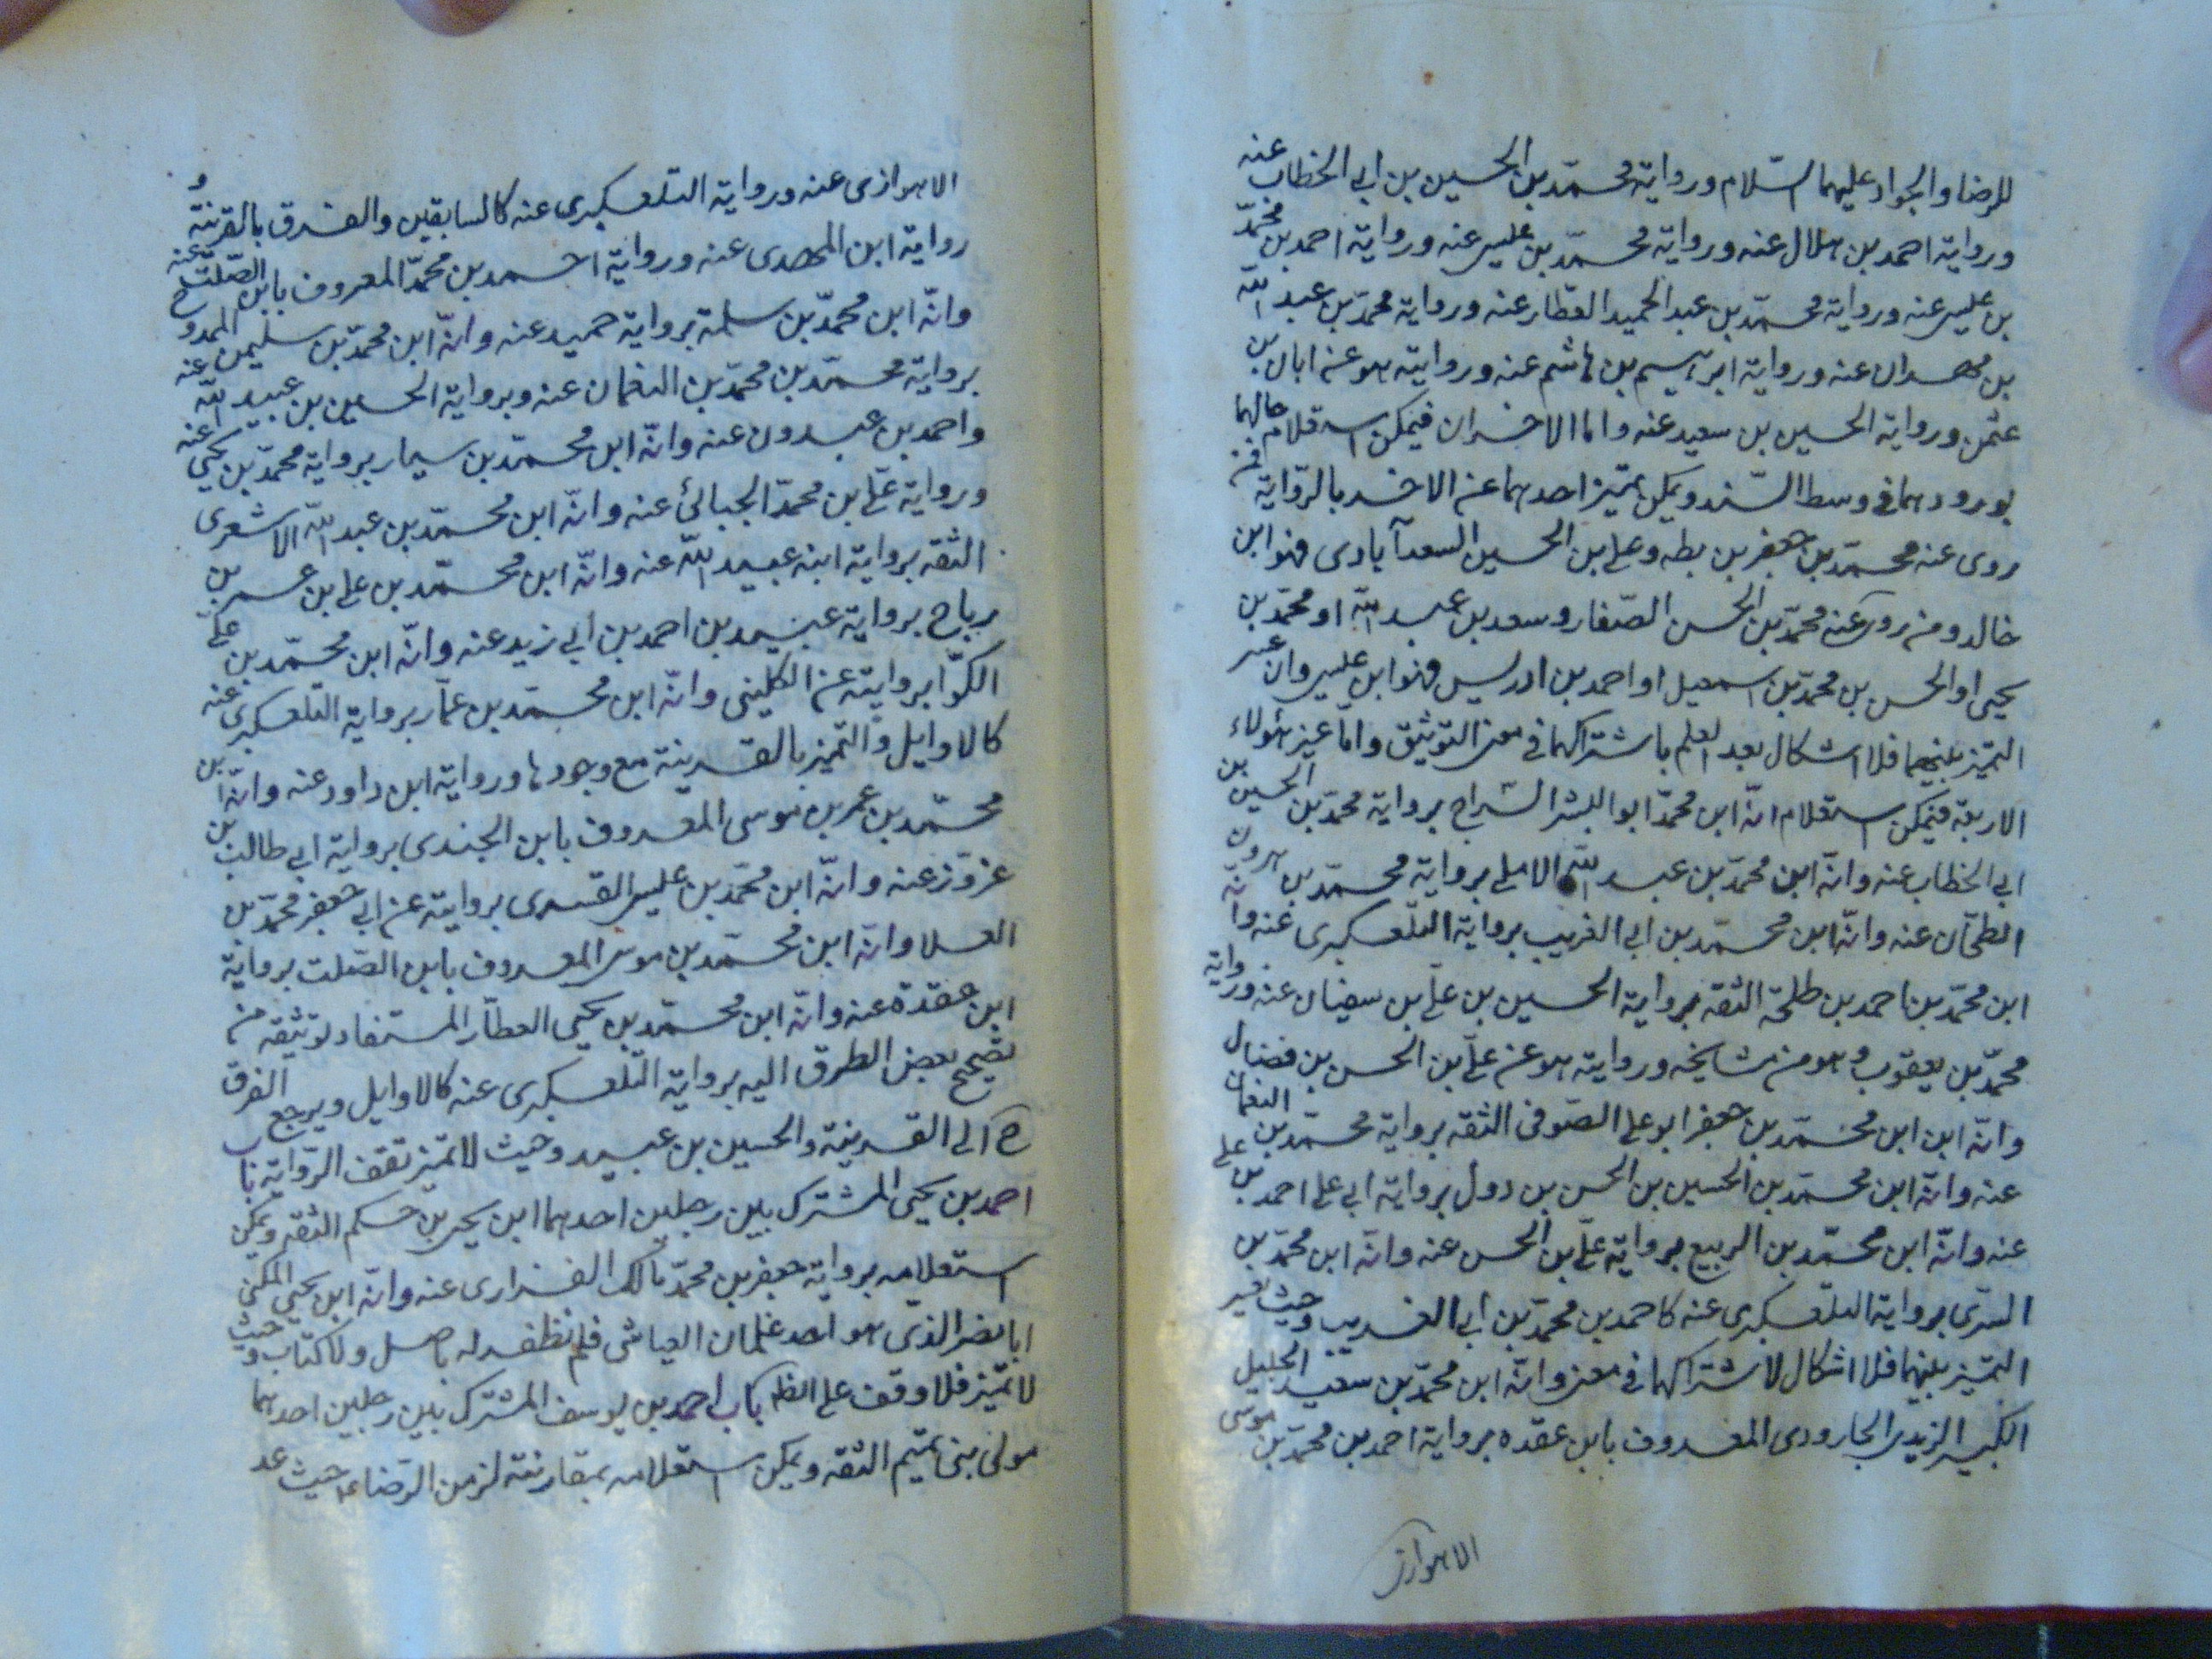 للرضا والجواد عليهما السّلام ورواية محمّد بن الحسين بن ابي الخطاب عنه
ورواية احمد بن هلال عنه ورواية محمّد بن عيسى عنه ورواية احمد بن محمّد
بن عيسى عنه ورواية محمّد بن عبد الحميد العطّار عنه ورواية محمّد بن عبد الله
بن مهران عنه ورواية ابرهيم بن هاشم عنه وروايته هو عن ابان بن
عثمن ورواية الحسين بن سعيد عنه واما الاخران فيمكن استعلام حالهما
بورودهما في وسط السّند ويمكن تميّز احدهما عن الاخر بالرّواية فمن
روى عنه محمّد بن جعفر بن بطه وعلي بن الحسين السعدآبادى فهو ابن
خالد ومن روى عنه محمّد بن الحسن الصّفار وسعد بن عبد الله او محمّد بن
يحيى او الحسن بن محمّد بن اسمعيل او احمد بن ادريس فهو ابن عيسى وان عسر
التميّز بينهما فلا اشكال بعد العلم باشتراكهما في معنى التوثيق وامّا غير هؤلاء
الاربعة فيمكن استعلام انّه ابن محمّد ابو البشر السّراج برواية محمّد بن الحسين بن
ابي الخطاب عنه وانّه ابن محمّد بن عبد الله الاملي برواية محمّد بن هرون
الطحّان عنه وانّه ابن محمّد بن ابي الغريب برواية التلّعكبرى عنه وانّه
ابن محمّد بن احمد بن طلحة الثقه برواية الحسين بن علّي بن سفيان عنه ورواية
محمّد بن يعقوب وهو من مشايخه وروايته هو عن علّي بن الحسن بن فضال
وانّه ابن ابن محمّد بن جعفر ابو علي الصّوفى الثقه برواية محمّد بن النعمان
عنه وانّه ابن محمّد بن الحسين بن الحسن بن دول برواية ابي علي احمد بن علي
عنه وانّه ابن محمّد بن الربيع برواية علّي بن الحسن عنه وانّه ابن محمّد بن
السّرى برواية التلّعكبرى عنه كاحمد بن محمّد بن ابي الغريب وحيث يعسر
التميّز بينهما فلا اشكال لاشتراكهما في معنى وانّه ابن محمّد بن سعيد الجليل
الكبير الزيدى الجارودى المعروف بابن عقده برواية احمد بن محمّد بن موسى
الاهوازى
الاهوازى عنه ورواية التلعكبرى عنه كالسابقين والفرق بالقرينة و
رواية ابن المهدى عنه ورواية احمد بن محمّد المعروف بابن الصّلت عنه
وانّه ابن محمّد بن سلمة برواية حميد عنه وانّه ابن محمّد بن سليمن الممدوح
برواية محمّد بن محمّد بن النعمان عنه وبرواية الحسين بن عبيد الله عنه
واحمد بن عبدون عنه وانّه ابن محمّد بن سيار برواية محمّد بن يحيى عنه
ورواية علّي بن محمّد الجبائى عنه وانّه ابن محمّد بن عبد الله الاشعرى
الثقه برواية ابنه عبيد الله عنه وانّه ابن محمّد بن علي بن عمر بن
رباح برواية عبيد بن احمد بن ابي زيد عنه وانّه ابن محمّد بن علّي
الكوّا بروايته عن الكلينى وانّه ابن محمّد بن عمّار برواية التلّعكبرى عنه
كالاوايل والتميز بالقرينة مع وجودها ورواية ابن داود عنه وانّه ابن
محمّد بن عمر بن موسى المعروف بابن الجندى برواية ابي طالب بن
غزوّر عنه وانّه ابن محمّد بن عيسى القسرى بروايته عن ابي جعفر محمّد بن
العلا وانّه ابن محمّد بن موسى المعروف بابن الصّلت برواية
ابن عقدة عنه وانّه ابن محمّد بن يحيى العطّار المستفاد توثيقه من
تصحيح بعض الطرق اليه برواية التلّعكبرى عنه كالاوايل ويرجع الفرق
الى القرينة والحسين بن عبيد وحيث لا تميّز تقف الرّواية باب
احمد بن يحيى المشترك بين رجلين احدهما ابن يحيى بن حكم الثقه ويمكن
استعلامه برواية جعفر بن محمّد مالك الفزارى عنه وانّه ابن يحيى المكنى
ابا نصر الذّى هو احد غلمان العياشى فلم نظفر له باصل ولا كتاب وحيث
لا تميّز فلا وقف على الظه باب احمد بن يوسف المشترك بين رجلين احدهما
مولى بنى تميم الثقه ويمكن استعلامه بمقارنته لزمن الرّضا ع حيث عد